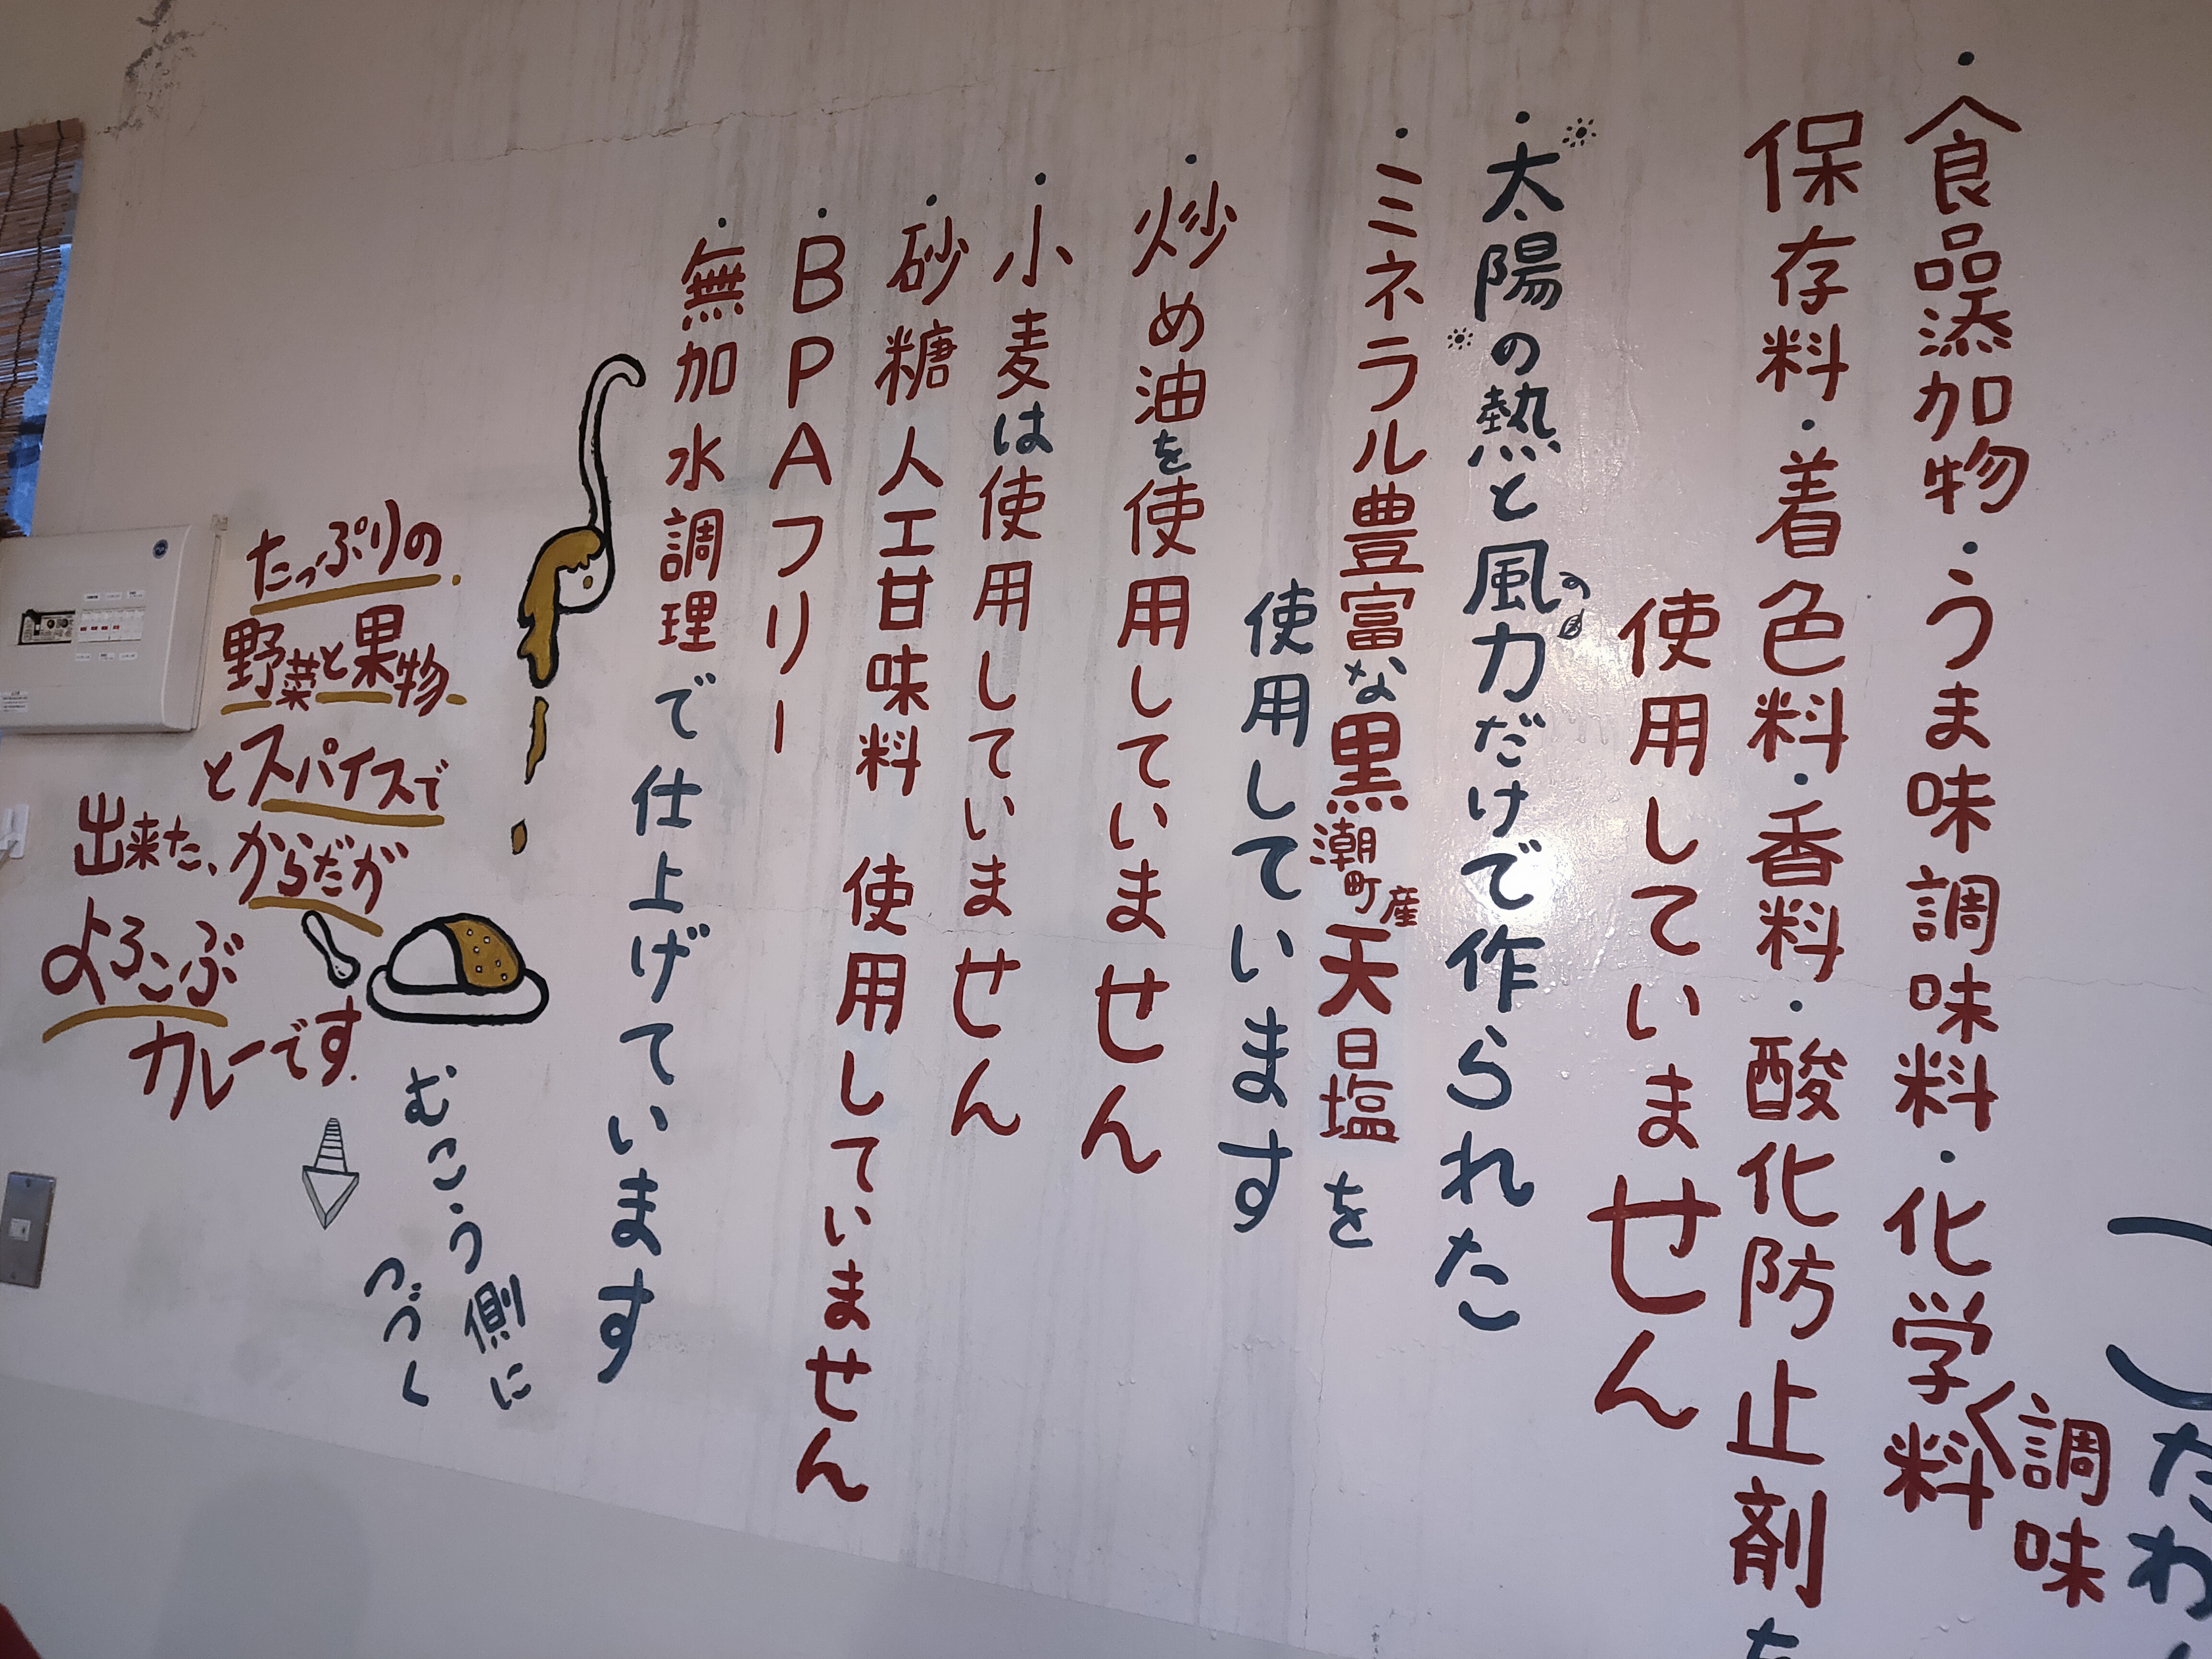 こたわ
・食品添加物・うま味調味料・化学調味料
保存料・着色料・香料・酸化防止剤を
使用していません
・太陽の熱と風の力だけで作られた
・ミネラル豊富な黒潮町産天日塩を
使用しています
・炒め油を使用していません
・小麦は使用していません
・砂糖人工甘味料 使用していません
・BPAフリー
・無加水調理で仕上げています
たっぷりの
野菜と果物
とスパイスで
出来た、からだが
よろこぶ
カレーです.
むこう側に
つづく